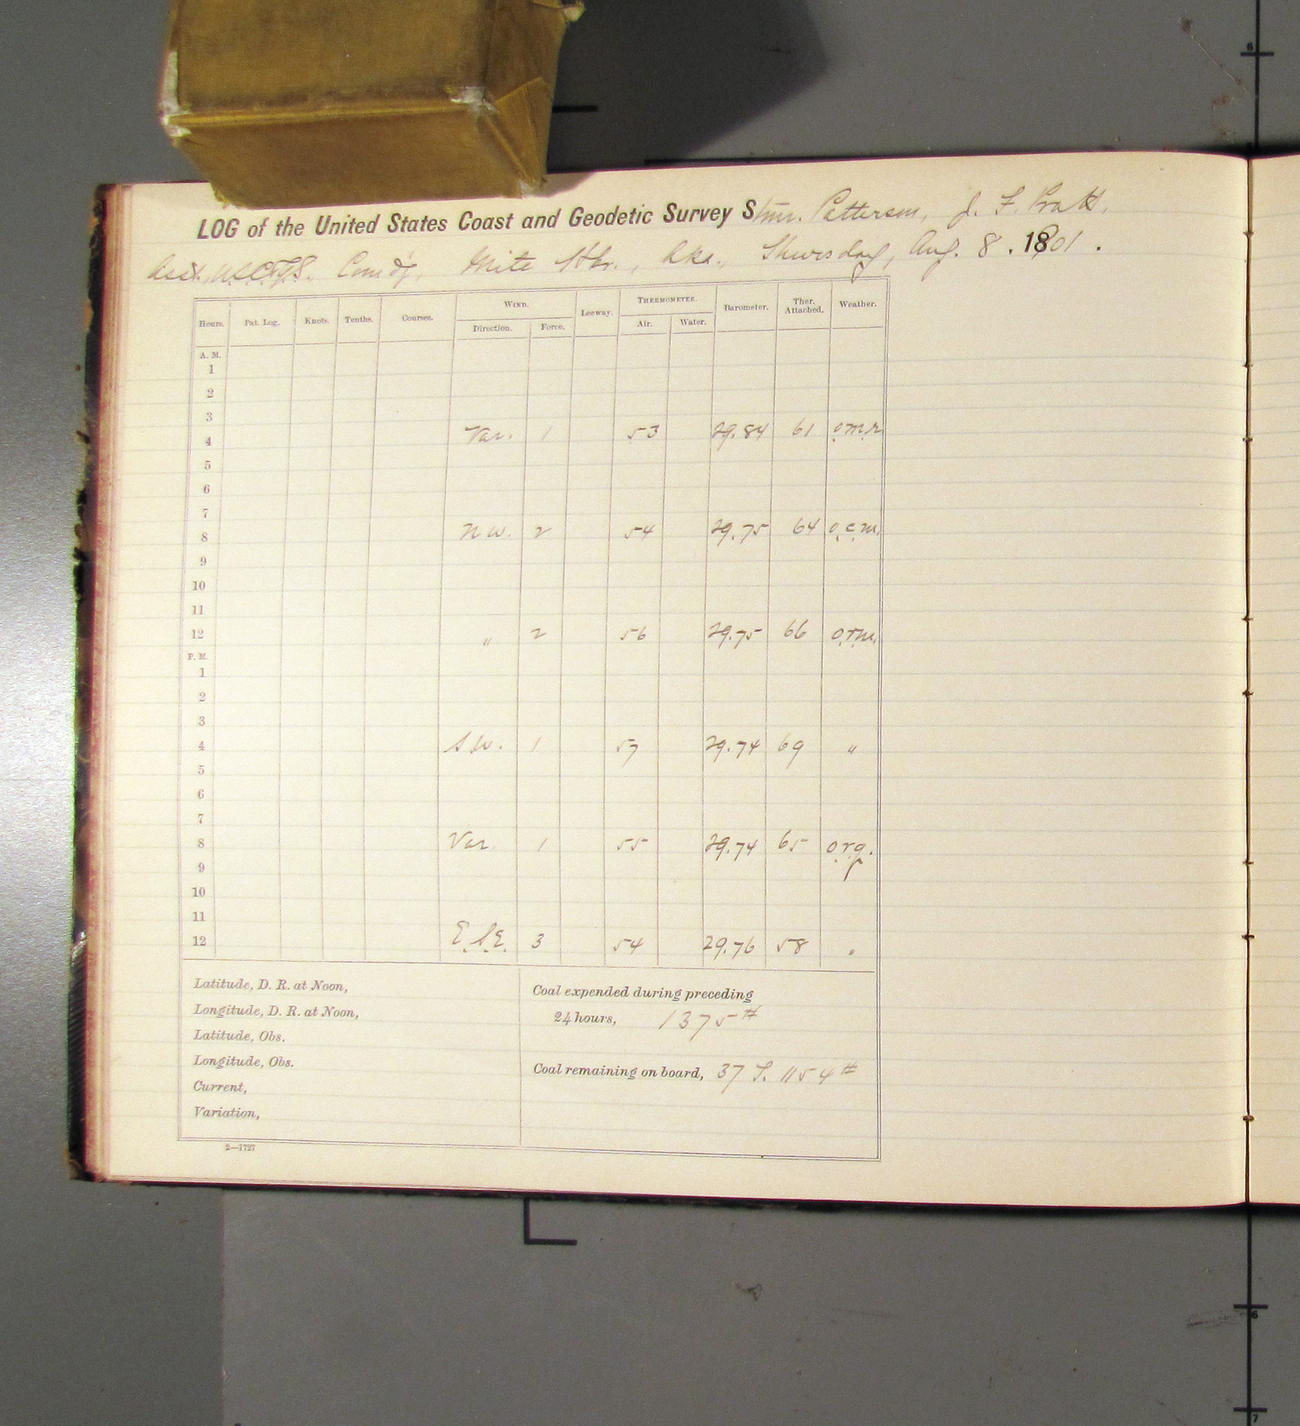 LOG of the United States Coast and Geodetic Survey Stmr. Patterson, J. F. Pratt,
Asst. U.S.C.&G.S. Comd'g, Mite Hbr., Aka., Thursday, Aug. 8. 1901.
Hours. Pat. Log. Knots. Tenths. Courses. WIND. Leeway. THERMOMETER. Barometer. Ther. Attached. Weather.
Direction. Force. Air. Water.
A. M.
1
2
3
4 Var. 1 53 29.84 61 o.m.r.
5
6
7
8 N W. 2 54 29.75 64 o.c.m.
9
10
11
12 " 2 56 29.75 66 o.r.m.
P. M.
1
2
3
4 S.W. 1 57 29.74 69 "
5
6
7
8 Var. 1 55 29.74 65 o.r.q.
9
10
11
12 E.S.E. 3 54 29.76 58 "
Latitude, D. R. at Noon,
Longitude, D. R. at Noon,
Latitude, Obs.
Longitude, Obs.
Current,
Variation,
Coal expended during preceding
24 hours, 1375 #
Coal remaining on board, 37 T. 1154 #
2—1727
6
6
7